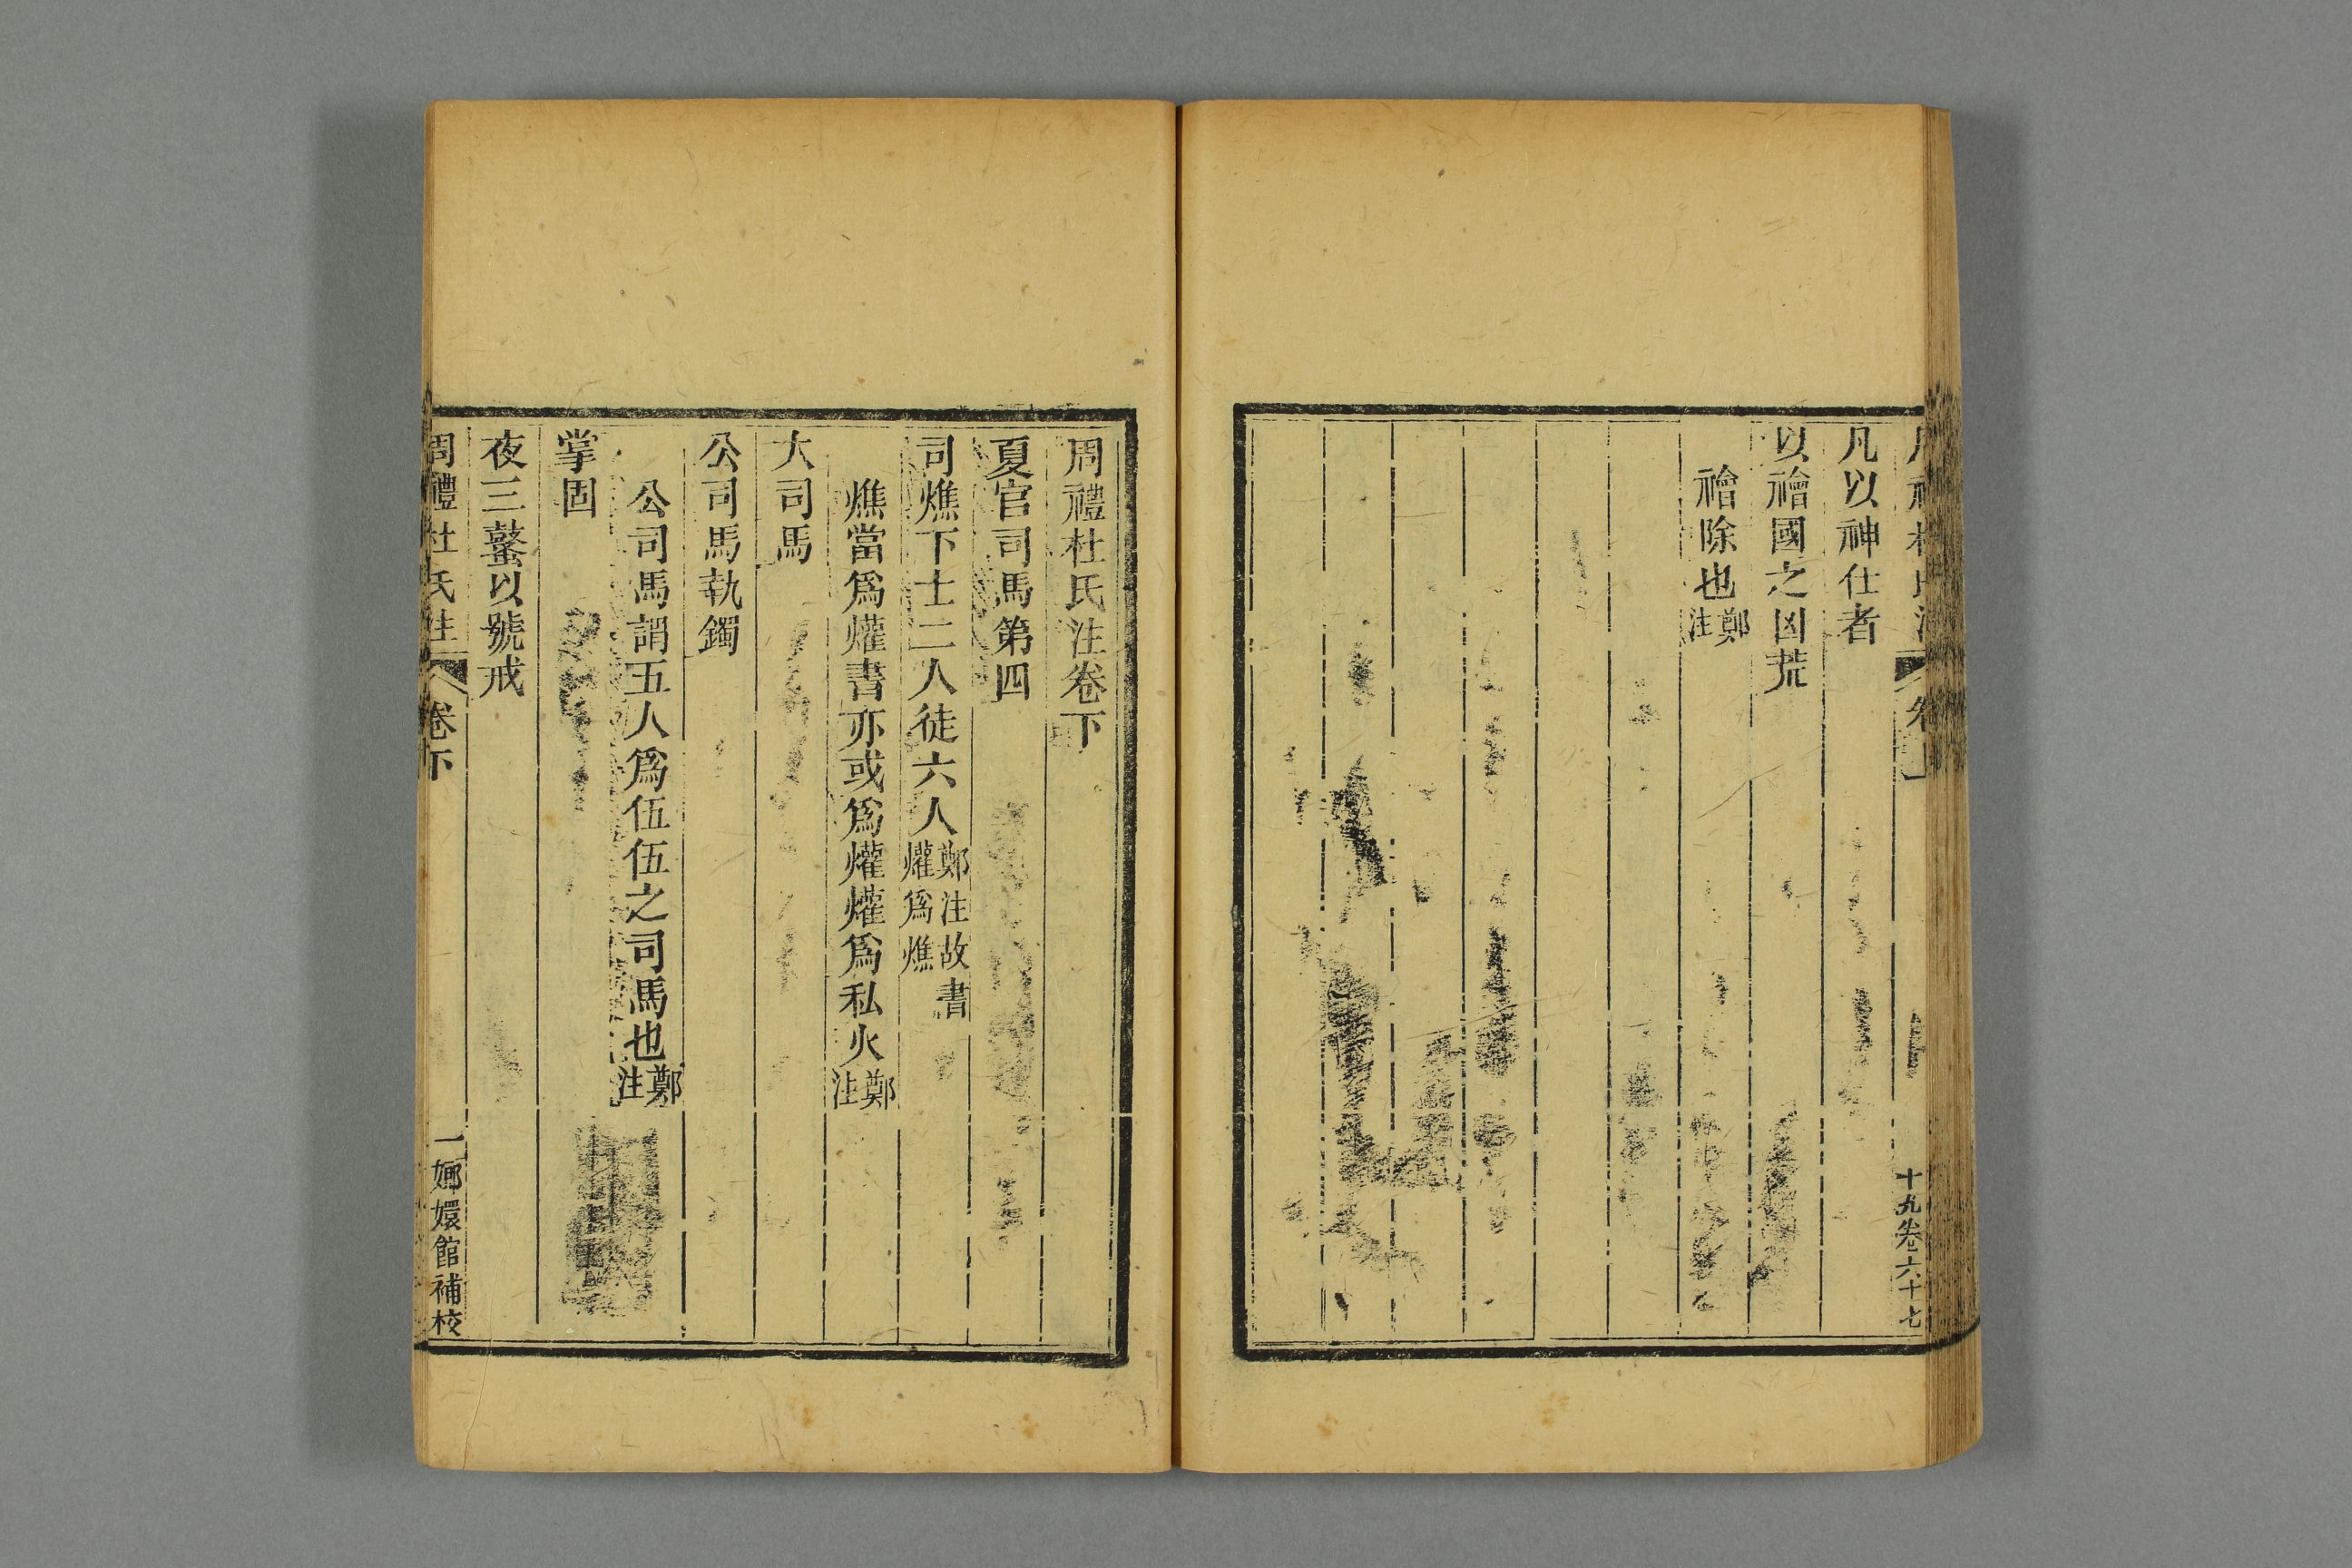 凡以神仕者
以禬國之凶荒
禬除也鄭注
十九卷六十七
周禮杜氏注卷下
夏官司馬第四
司燋下士二人徒六人鄭注故書爟爲燋
燋當爲爟書亦或爲爟爟爲私火鄭注
大司馬
公司馬執鐲
公司馬謂五人爲伍伍之司馬也鄭注
掌固
夜三鼜以號戒
周禮杜氏注 卷下 一 嫏嬛館補校